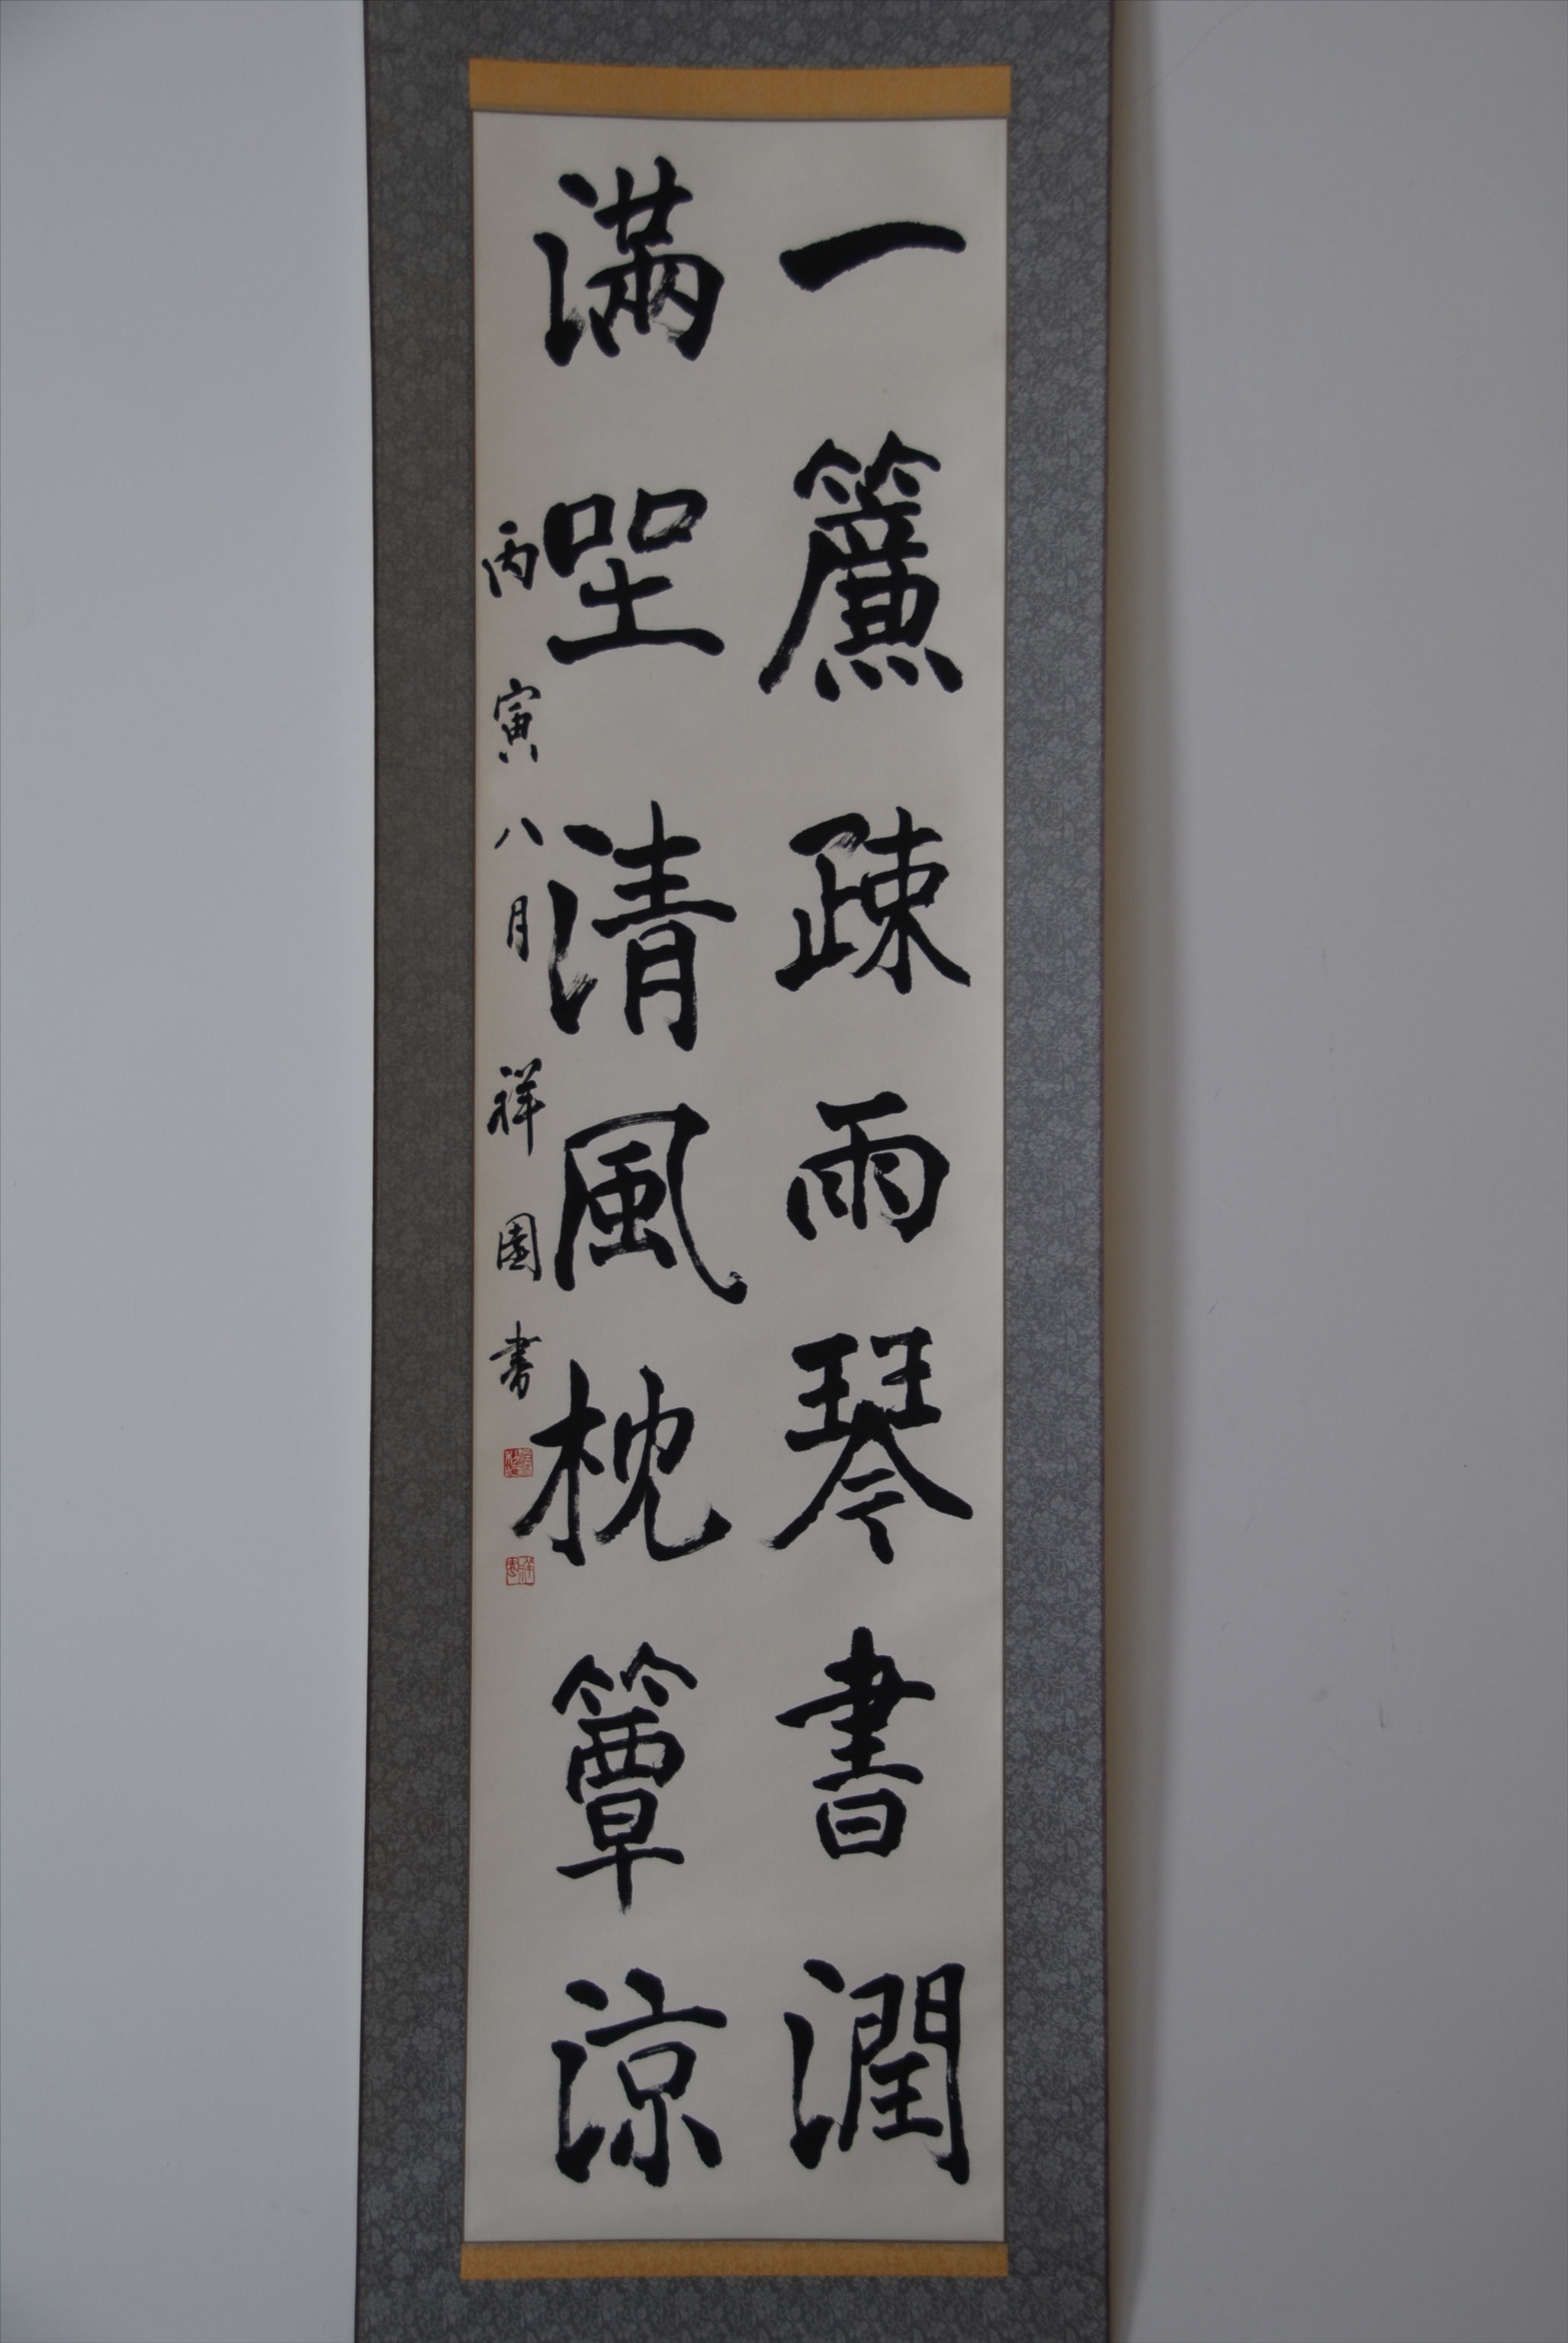 一簾疎雨琴書潤
満坐清風枕簟涼
丙寅八月祥園書